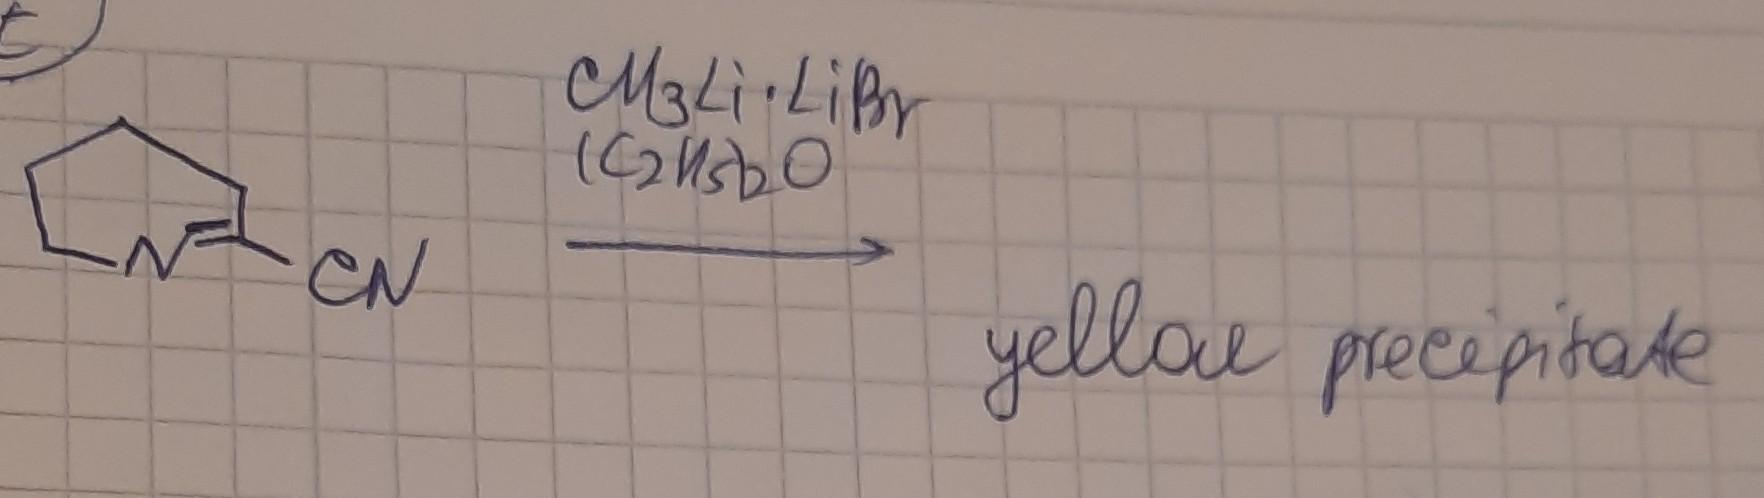 CH3Li·LiBr
(C2H5)2O
N
CN
yellow precipitate